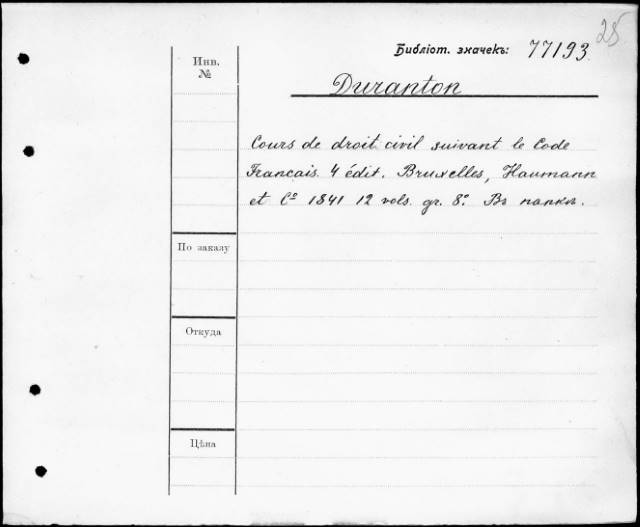 25
Библіот. значекъ: 77193
Инв.
№
Duranton
Cours de droit civil suivant le Code
Francais. 4 édit. Bruxelles, Haumann
et Cº 1841 12 vols. gr. 8º. Въ папкѣ.
По заказу
Откуда
Цѣна